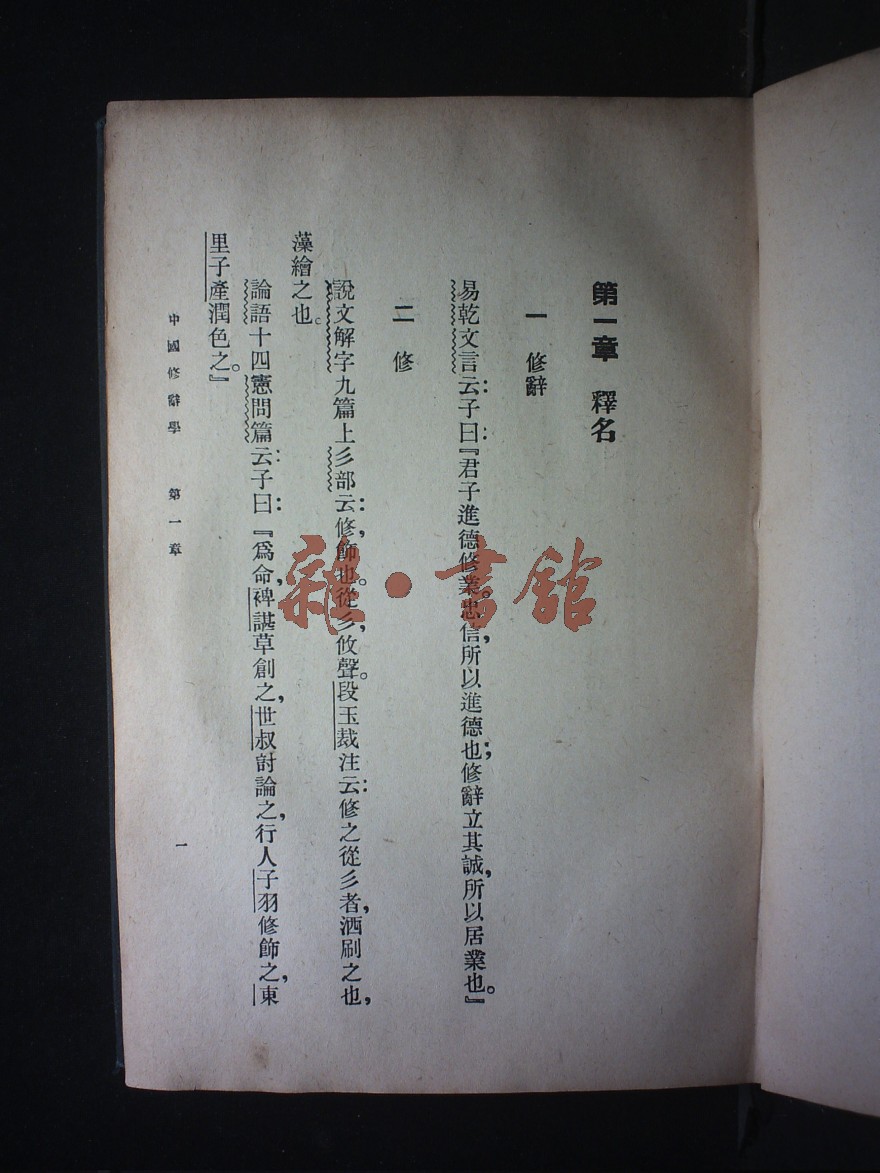 第一章　釋名
一　修辭
易乾文言云：子曰：『君子進德修業。忠信，所以進德也；修辭立其誠，所以居業也。』
二　修
說文解字九篇上彡部云：修，飾也。從彡，攸聲。段玉裁注云：修之從彡者，洒刷之也，
藻繪之也。
論語十四憲問篇云：子曰：『爲命，裨諶草創之，世叔討論之，行人子羽修飾之，東
里子產潤色之。』
中國修辭學　第一章
一
雜·書館